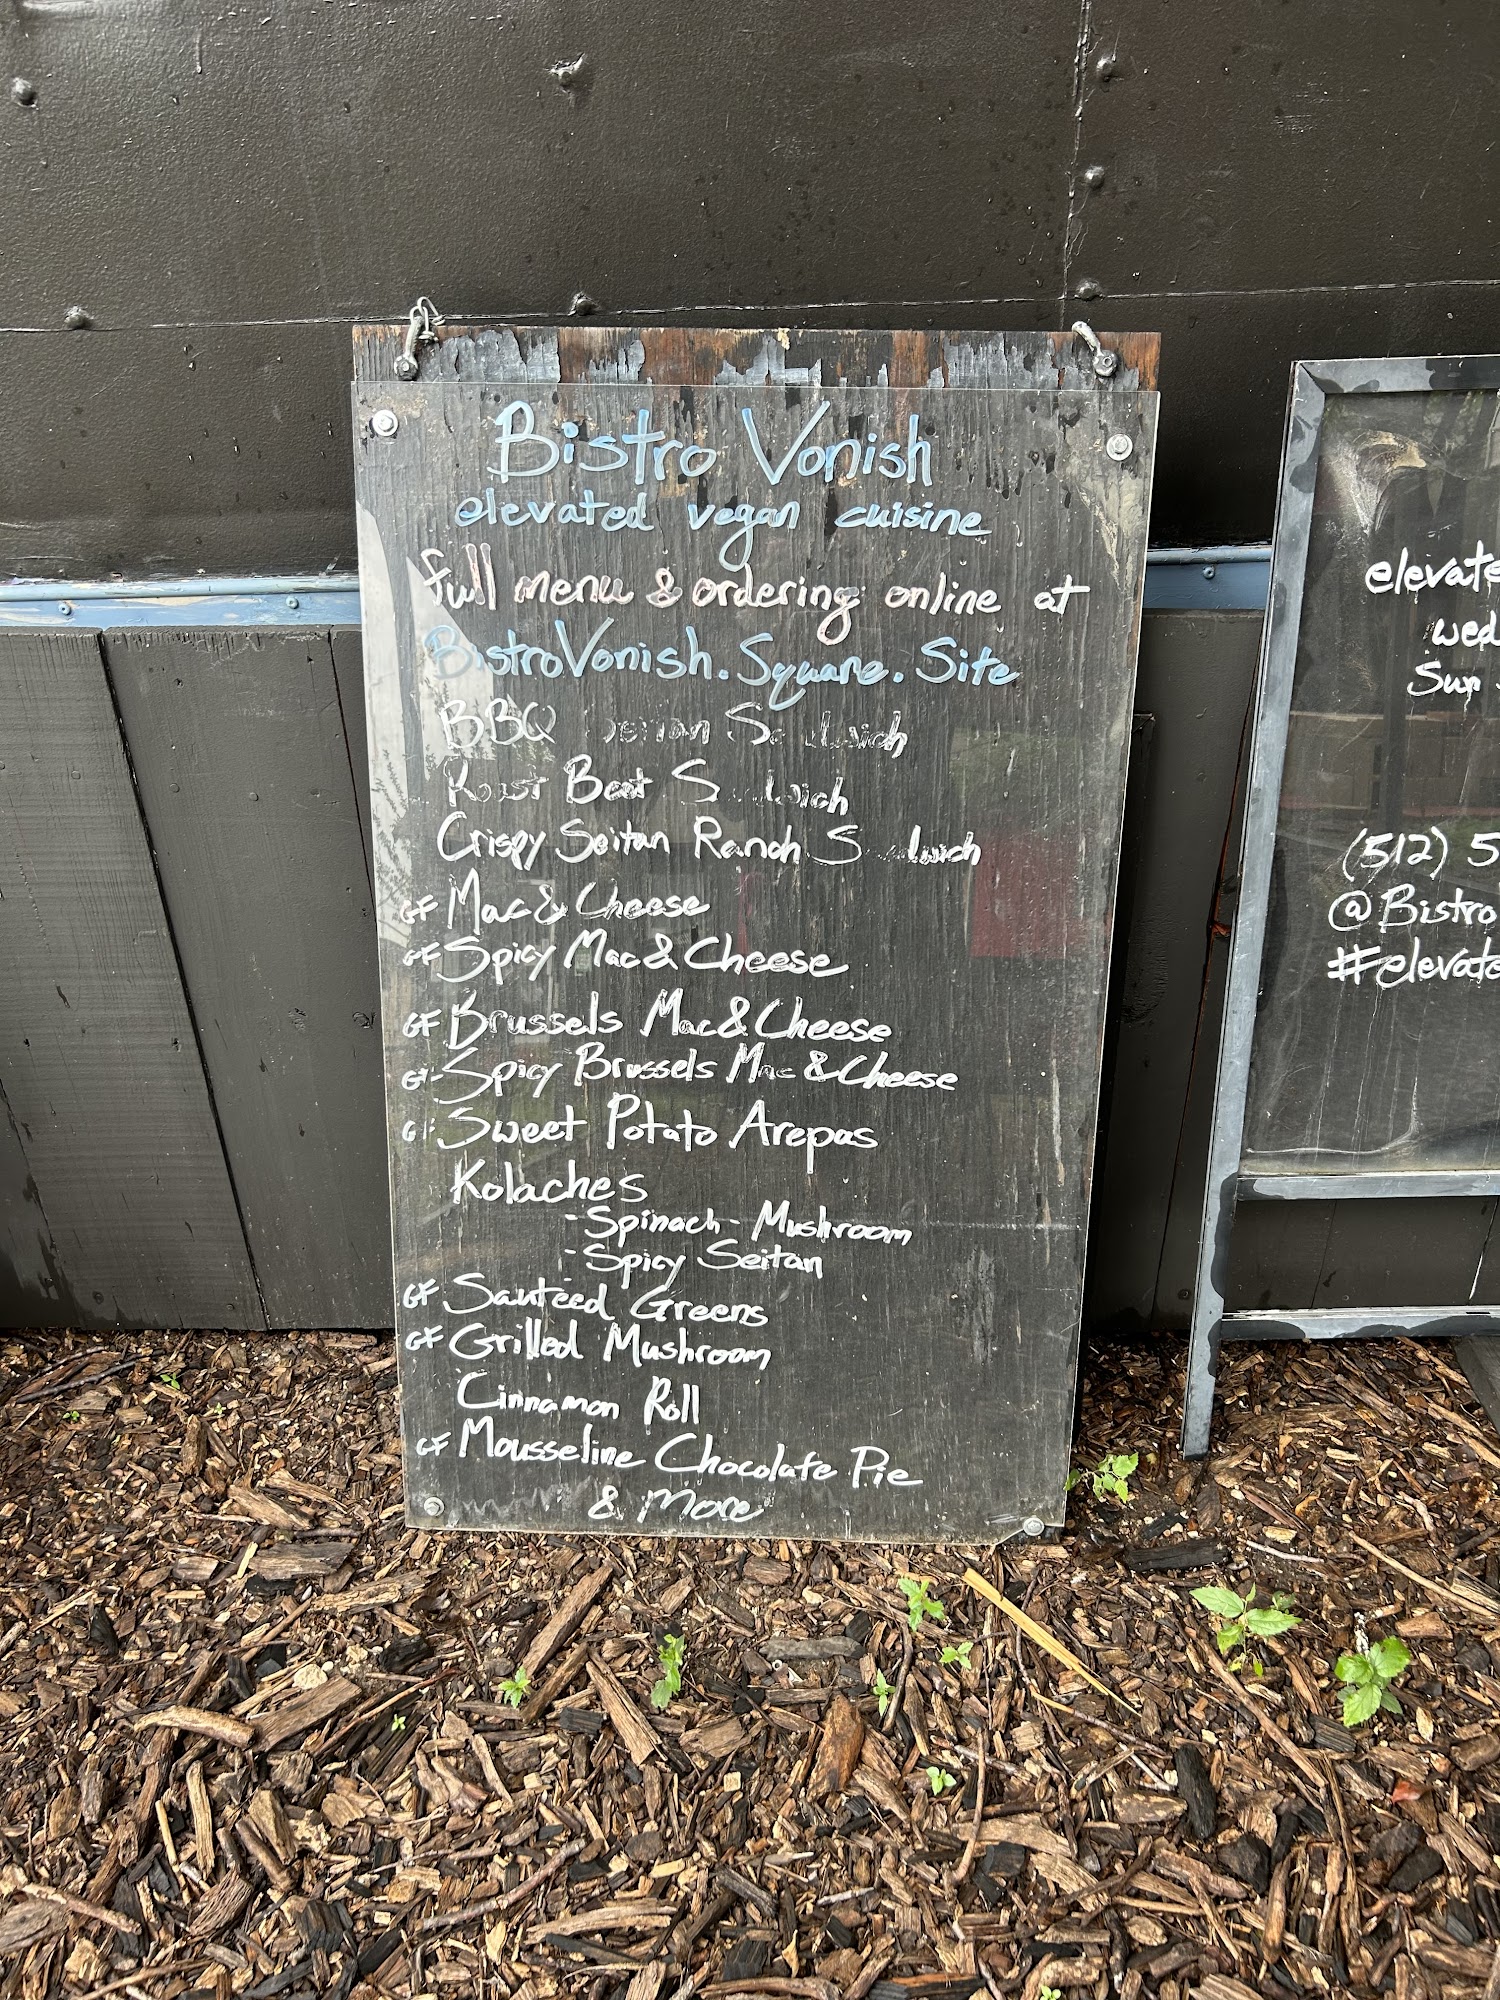 Bistro Vonish
elevated vegan cuisine
full menu & ordering online at
BistroVonish.Square.Site
BBQ Seitan Sandwich
Roast Beet Sandwich
Crispy Seitan Ranch Sandwich
GF Mac & Cheese
GF Spicy Mac & Cheese
GF Brussels Mac & Cheese
GF Spicy Brussels Mac & Cheese
GF Sweet Potato Arepas
Kolaches
- Spinach - Mushroom
- Spicy Seitan
GF Sauteed Greens
GF Grilled Mushroom
Cinnamon Roll
GF Mousseline Chocolate Pie
& More
elevate
wed
Sun
(512) 5
@Bistro
#elevate